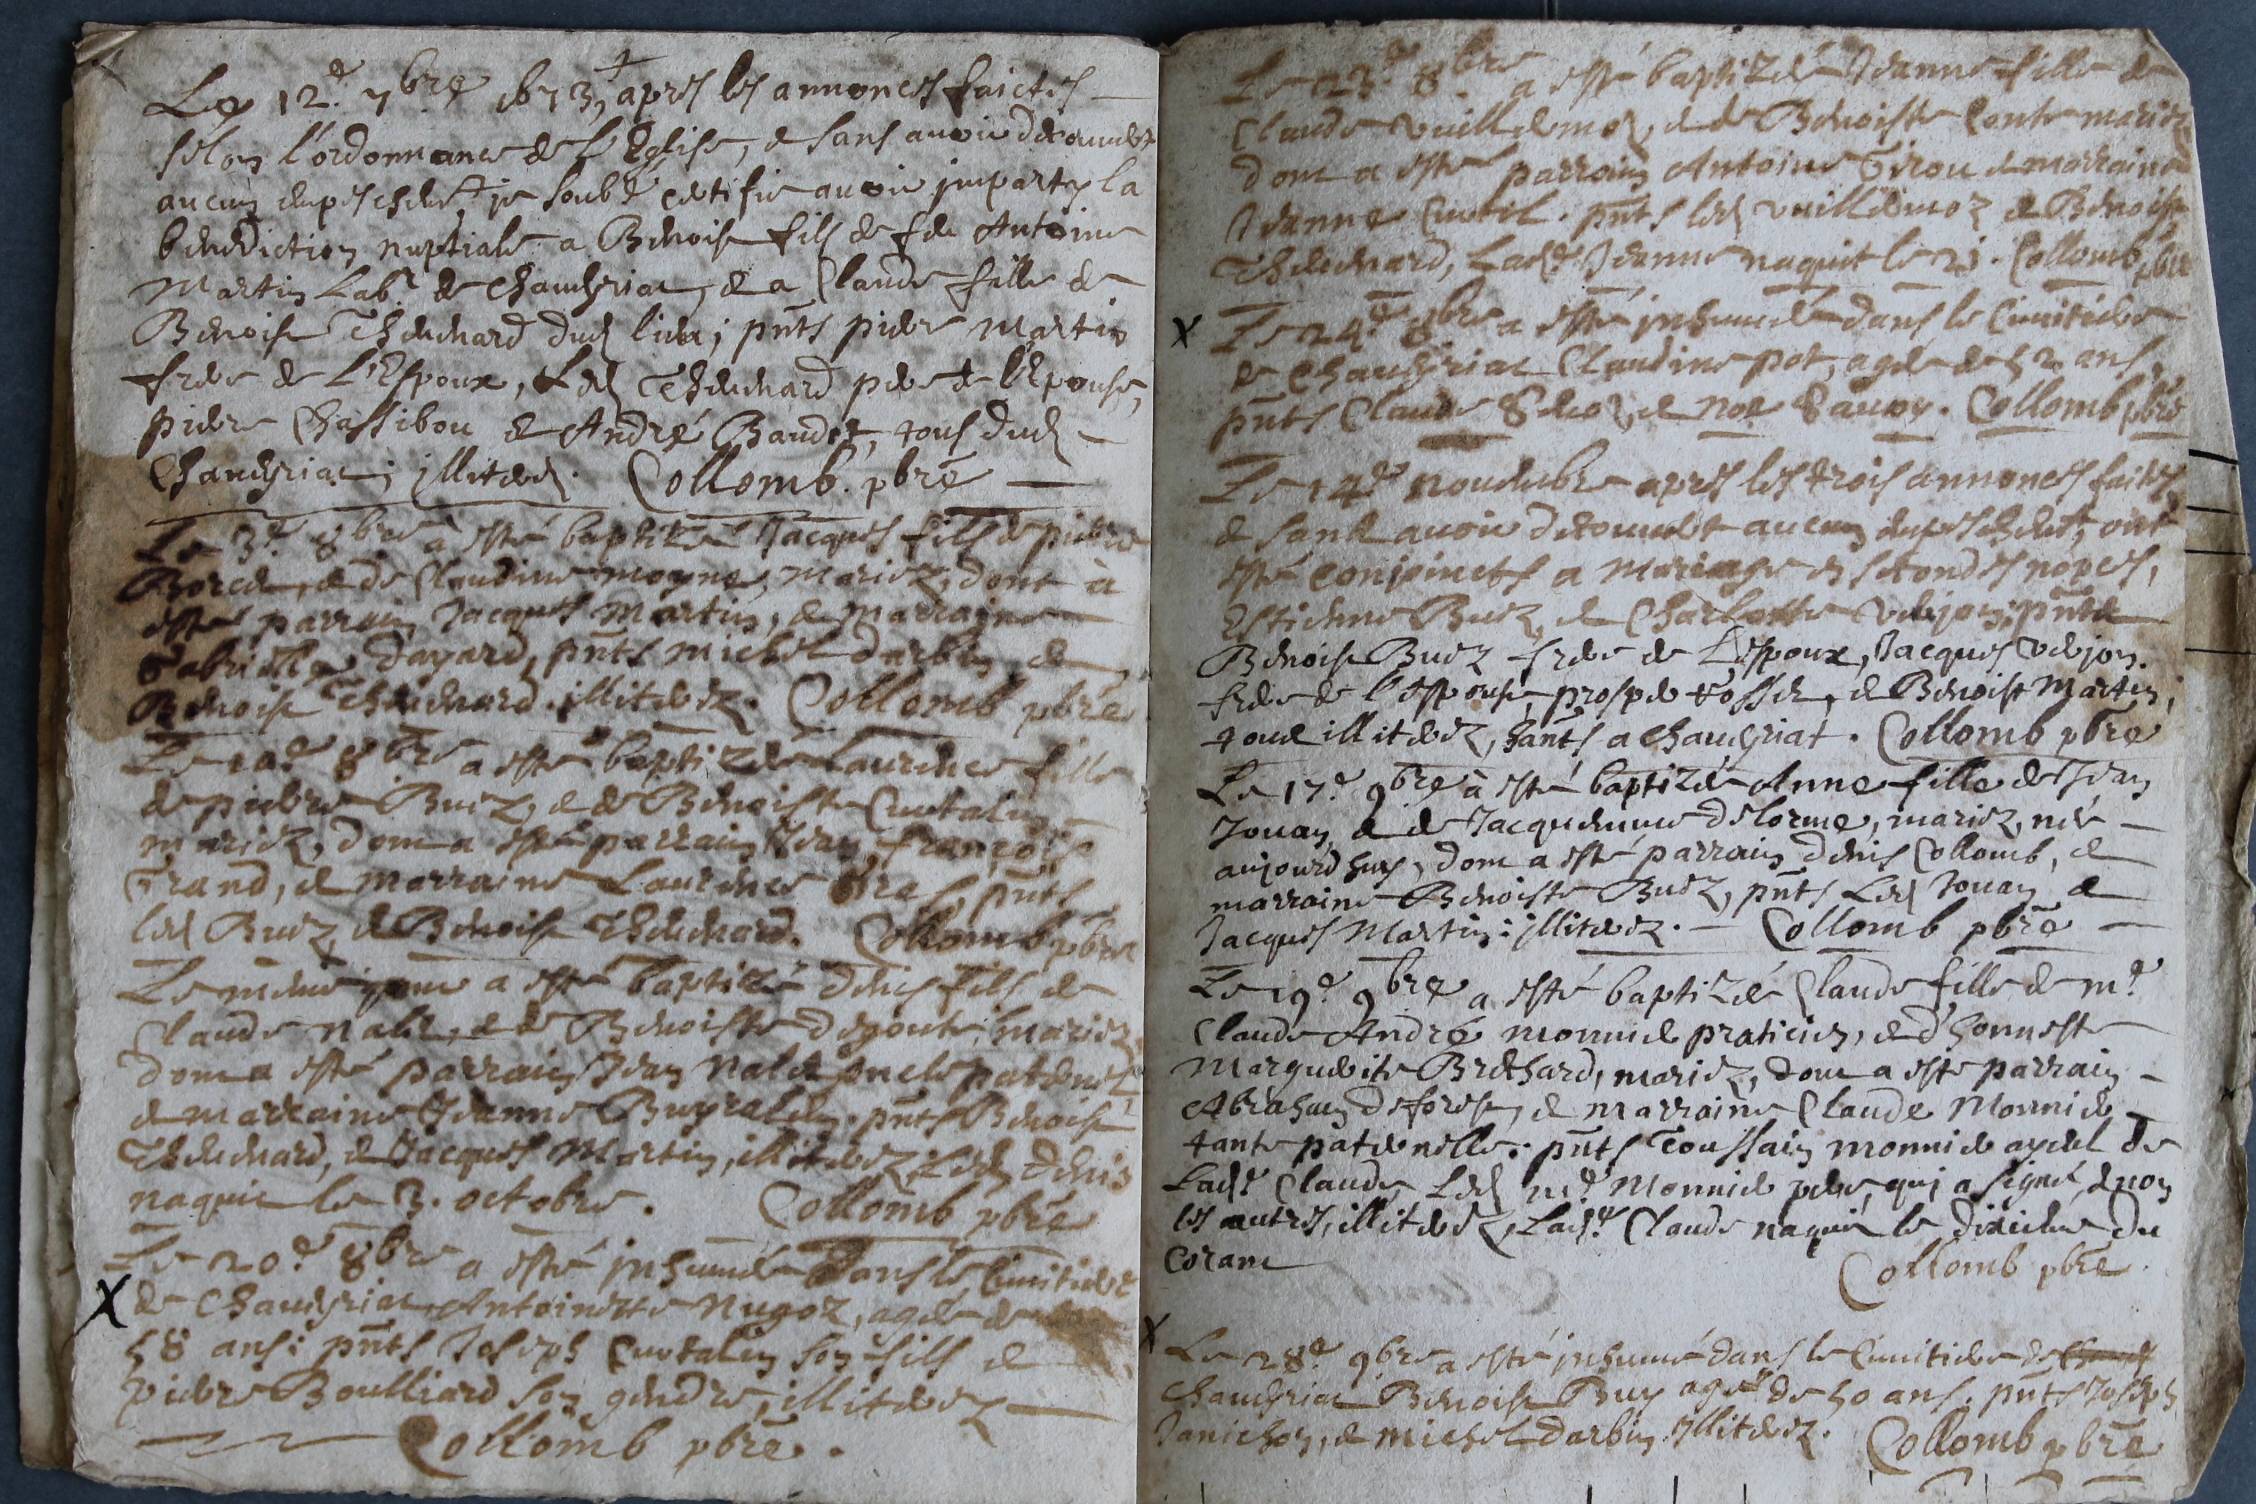 Le 12e 7bre 1673, apres les annonces faictes
selon l'ordonnance de l'Eglise, & sans avoir decouvert
aucun empeschemt, je soubé certifie avoir imparty la
benediction nuptiale a Benoist fils de feu Antoine
Martin Labr de Chaveyriat, & a Claude fille de
Benoist Thevenard dud lieu; pnts pierre Martin
frere de L'Espoux, Led Thevenard pere de l'Epouse,
pierre Chassibou & André Baudet, tous dud
Chaveyriat; illiterez. Collomb pbre
Le 3e 8bre à esté baptizé Jacques fils de pierre
Borcet, & de Claudine moyne, mariez, dont à
esté parrain Jacques Martin, & marraine
Gabrielle Dayard, pnts michel darbin, &
Benoist Thevenard. illiterez. Collomb pbre
Le 10e 8bre a esté baptizée Laurence fille
de pierre Buez, & de Benoiste Curtalin
mariez, dont a esté parrain Jean françois
Grand, & marraine Laurence pnts
led Buez, & Benoist Thevenard. Collomb pbre
Le mesme jour a esté baptizé Denis fils de
Claude nalet, & de Benoiste degoute, mariez,
dont a esté parrain Jean Nalet oncle paternel
& marraine Jeanne pnts Benoist
Thevenard, & Jacques Martin, illiterez, Led Denis
naquit le 3. octobre. Collomb pbre
Le 20e 8bre a esté inhumée dans le Cimitiere
de Chaveyriat Antoinette Nugoz, agée de
58 ans: pnts Joseph Curtalin son fils &
pierre Boulliard son gendre, illiterez
Collomb pbre.
Le 23e 8bre a esté baptizée Jeanne fille de
Claude vuillemoz, & de Benoiste Conte mariez
dont a esté parrain Antoine Girou & marraine
Jeanne Curtil. pnts led vuillemoz & Benoist
Thevenard, Lade Jeanne naquit le 21. Collomb pbre
Le 24e 8bre a esté inhumée dans le Cimitiere
de Chaveyriat Claudine pot, agée de 52 ans,
pnts Claude & noe Collomb pbre
Le 14e novembre apres les trois annonces faites
& sans avoir decouvert aucun empeschemt, ont
esté conjoincts a mariage en secondes nopces,
Estienne Buez, & Charlotte verjon; pnts
Benoist Buez frere de L'Espoux, Jacques verjon
frere de l'espouse, prosper & Benoist Martin;
tous illiterez, hants a Chaveyriat. Collomb pbre
Le 17e 9bre à esté baptizée Anne fille de Jean
Jouan & de Jacquemine delorme, mariez, née
aujourdhuy, dont a esté parrain denis Collomb, &
marraine Benoiste Buez, pnts Led Jouan &
Jacques Martin: illiterez. Collomb pbre
Le 19e 9bre a esté baptizée Claude fille de me
Claude André monnier praticien, & d'honneste
Marguerite Brethard, mariez, dont a esté parrain
Abraham deforest, & marraine Claude Monnier
tante paternelle: pnts Toussain monnier ayeul de
Lade Claude, Led me Monnier pere, qui a signé, & non
les autres, illiterez, Lade Claude naquit le dixieme du
Corant Collomb pbre.
Le 28e 9bre a esté inhumé dans le Cimitiere de
Chaveyriat Benoist Buy agé de 50 ans. pnts Joseph
Janichon, & michel darbin. illiterez. Collomb pbre